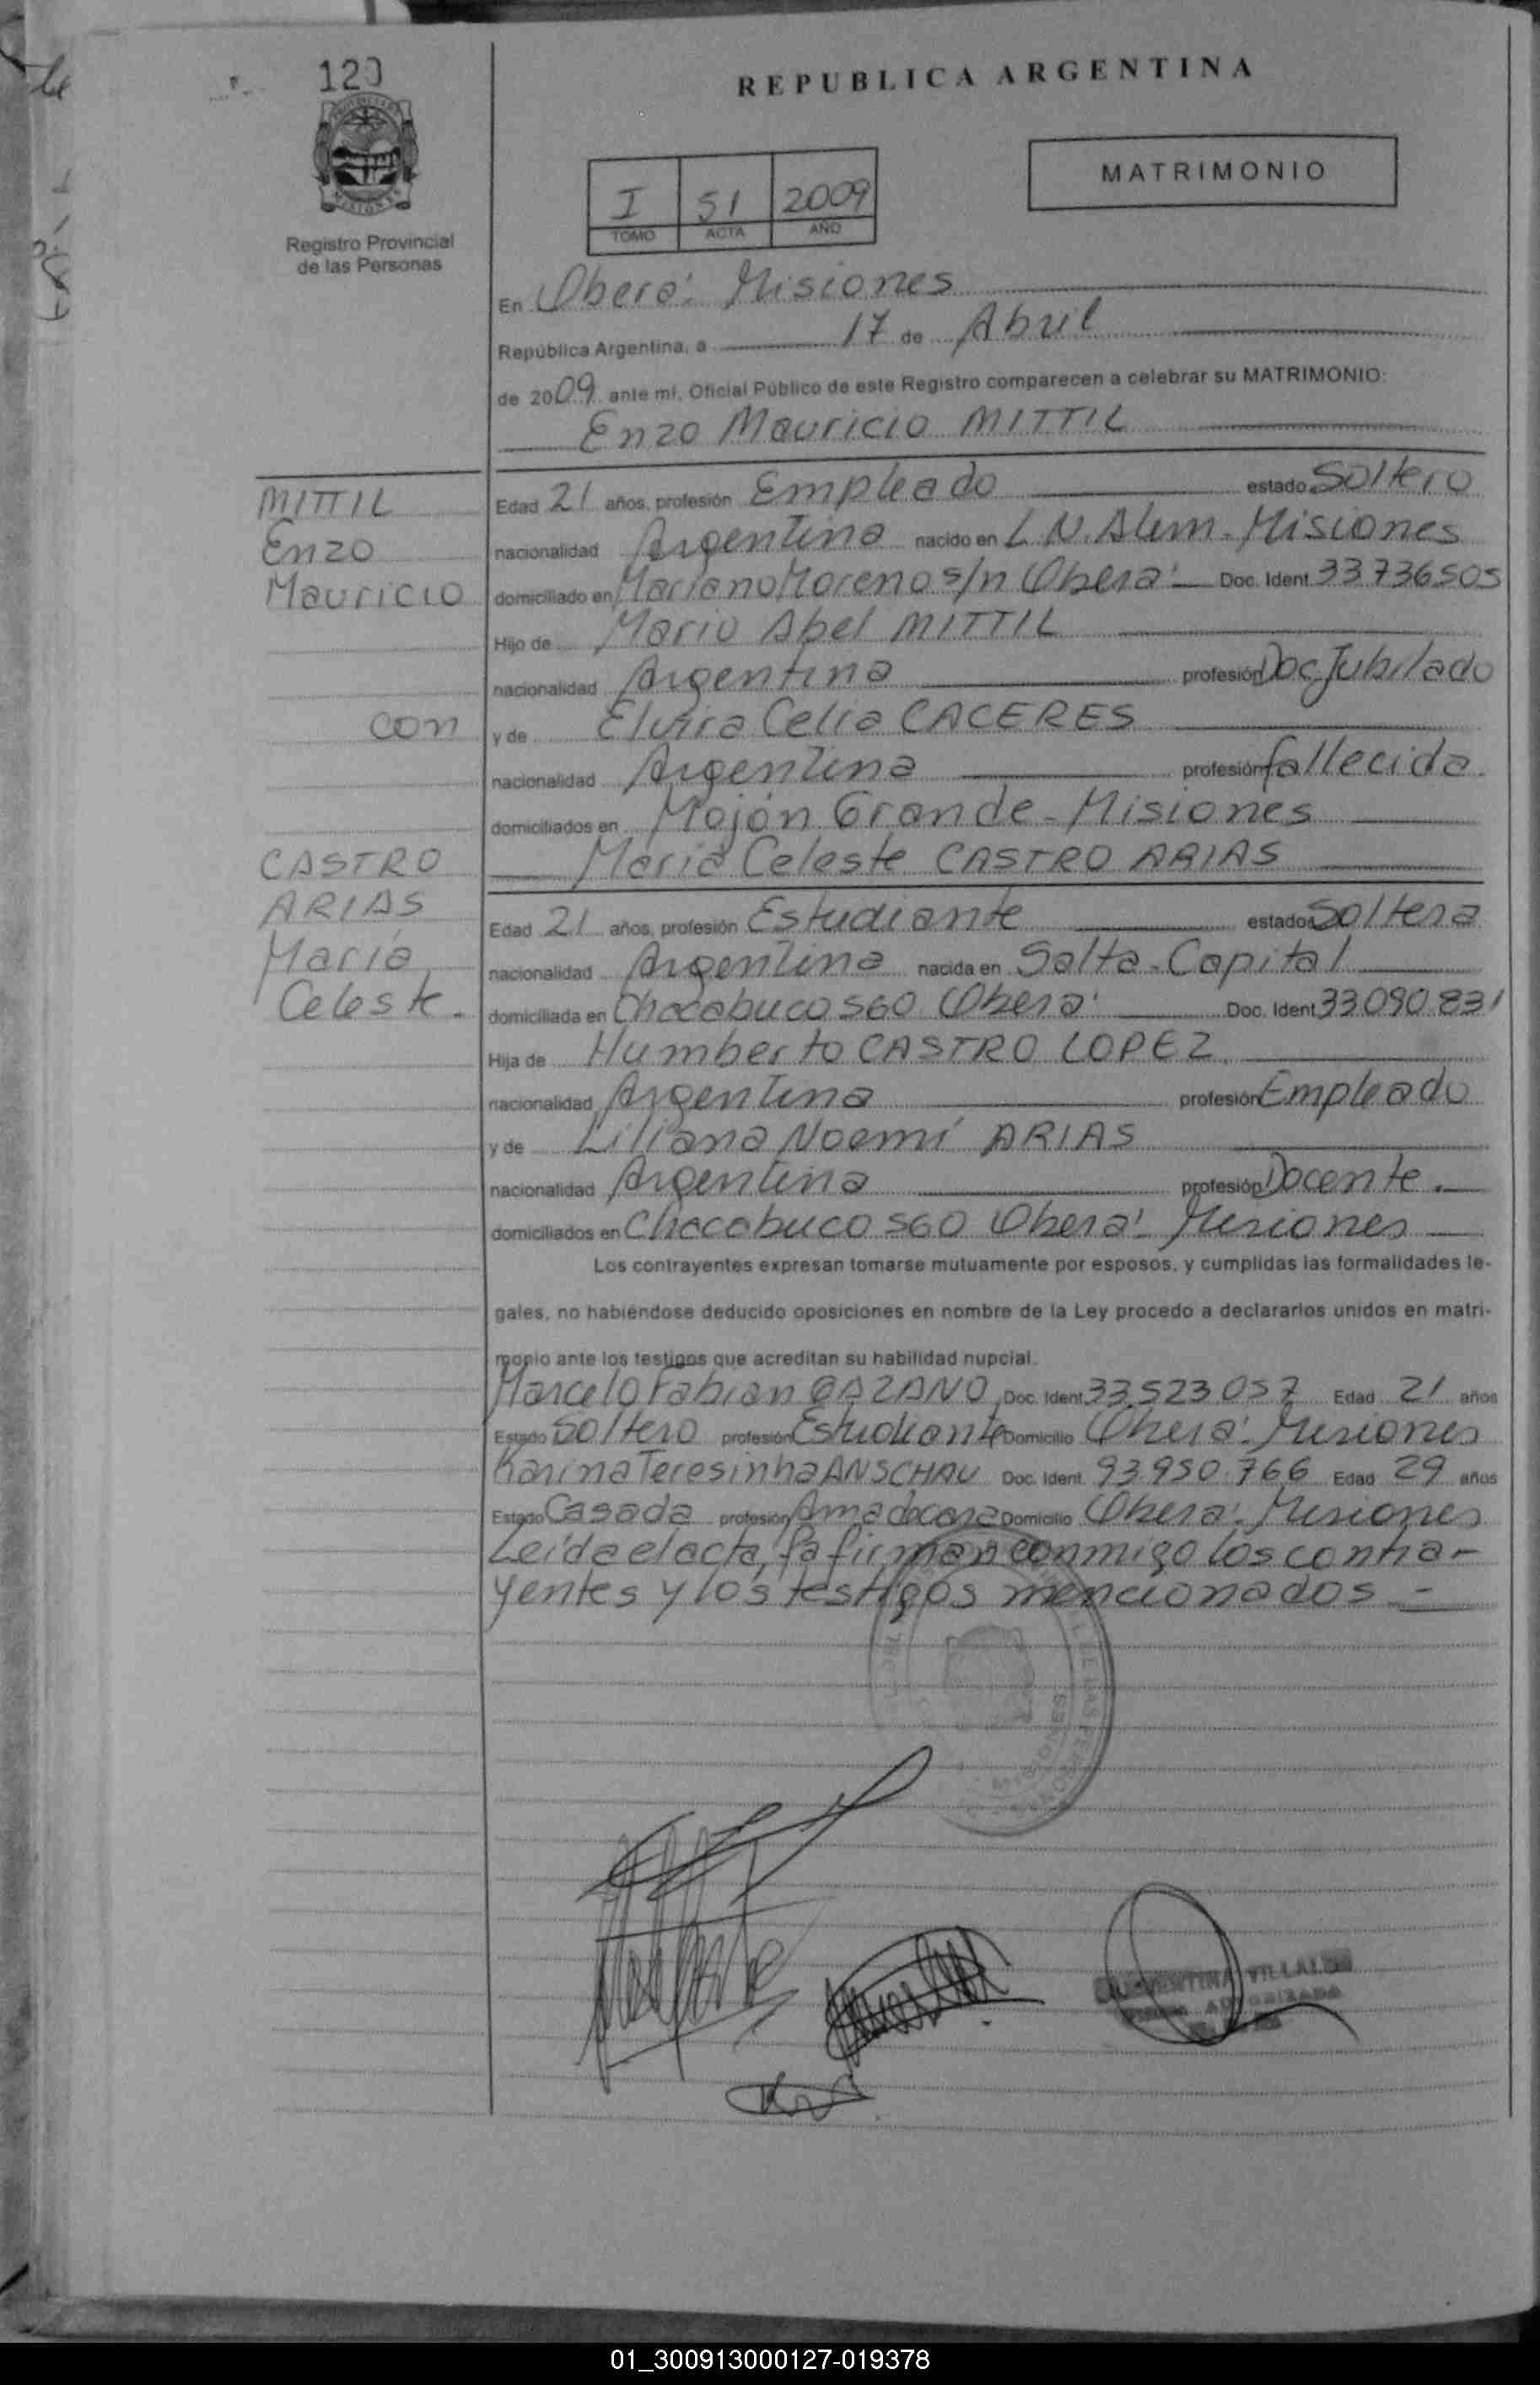 120
REPUBLICA ARGENTINA
MATRIMONIO
I 51 2009
TOMO ACTA AÑO
Registro Provincial
de las Personas
En Oberá: Misiones
República Argentina, a 17 de Abril
de 2009 ante mi, Oficial Público de este Registro comparecen a celebrar su MATRIMONIO:
Enzo Mauricio MITTIL
MITTIL
Enzo
Mauricio
con
CASTRO
ARIAS
María
Celeste.
Edad 21 años, profesión Empleado estado Soltero
nacionalidad Argentina nacido en L.N. Alem - Misiones
domiciliado en Mariano Moreno s/n Oberá - Doc. Ident. 33736505
Hijo de Mario Abel MITTIL
nacionalidad Argentina profesión Doc. Jubilado
y de Elvira Celia CACERES
nacionalidad Argentina profesión fallecida.
domiciliados en Mojón Grande - Misiones
María Celeste CASTRO ARIAS
Edad 21 años, profesión Estudiante estado Soltera
nacionalidad Argentina nacida en Salta - Capital
domiciliada en Chacabuco 560 Oberá Doc. Ident 33.090.831
Hija de Humberto CASTRO LOPEZ
nacionalidad Argentina profesión Empleado
y de Liliana Noemí ARIAS
nacionalidad Argentina profesión Docente.
domiciliados en Chacabuco 560 Oberá - Misiones
Los contrayentes expresan tomarse mutuamente por esposos, y cumplidas las formalidades le-
gales, no habiéndose deducido oposiciones en nombre de la Ley procedo a declararlos unidos en matri-
monio ante los testigos que acreditan su habilidad nupcial.
Marcelo Fabian Doc. Ident 33.523.057 Edad 21 años
Estado Soltero profesión Estudiante Domicilio Oberá - Misiones
Karina Teresinha ANSCHAU Doc. Ident. 93.950.766 Edad 29 años
Estado Casada profesión Ama de casa Domicilio Oberá - Misiones
Leída el acta, la firman conmigo los contra-
yentes y los testigos mencionados -
VILLALBA
01_300913000127-019378